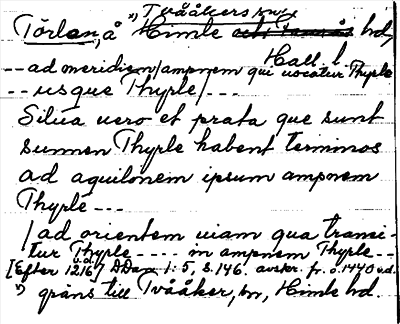 1) Tvååkers sn,
Törlan, å Himle hd,
Hall. l.
-- ad meridiem/ampnem qui uocatur Thyrle
-- usque Thyrle/ ---
Silua uero et prata que sunt
Thyrle habent terminos
ad aquilonem ipsum ampnem
Thyrle ---
/ad orientem uiam qua transi-
tur Thyrle ---- in ampnem Thyrle --
[Efter 1216] u.d. DDan 1:5, s. 146. avskr. fr. o. 1440 v.d.
1) gräns till Tvååker, sn, Himle hd.